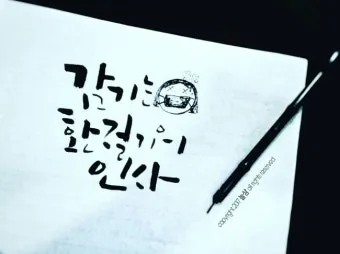 감기는
환절기의
인사
copyright 2017 all rights reserved